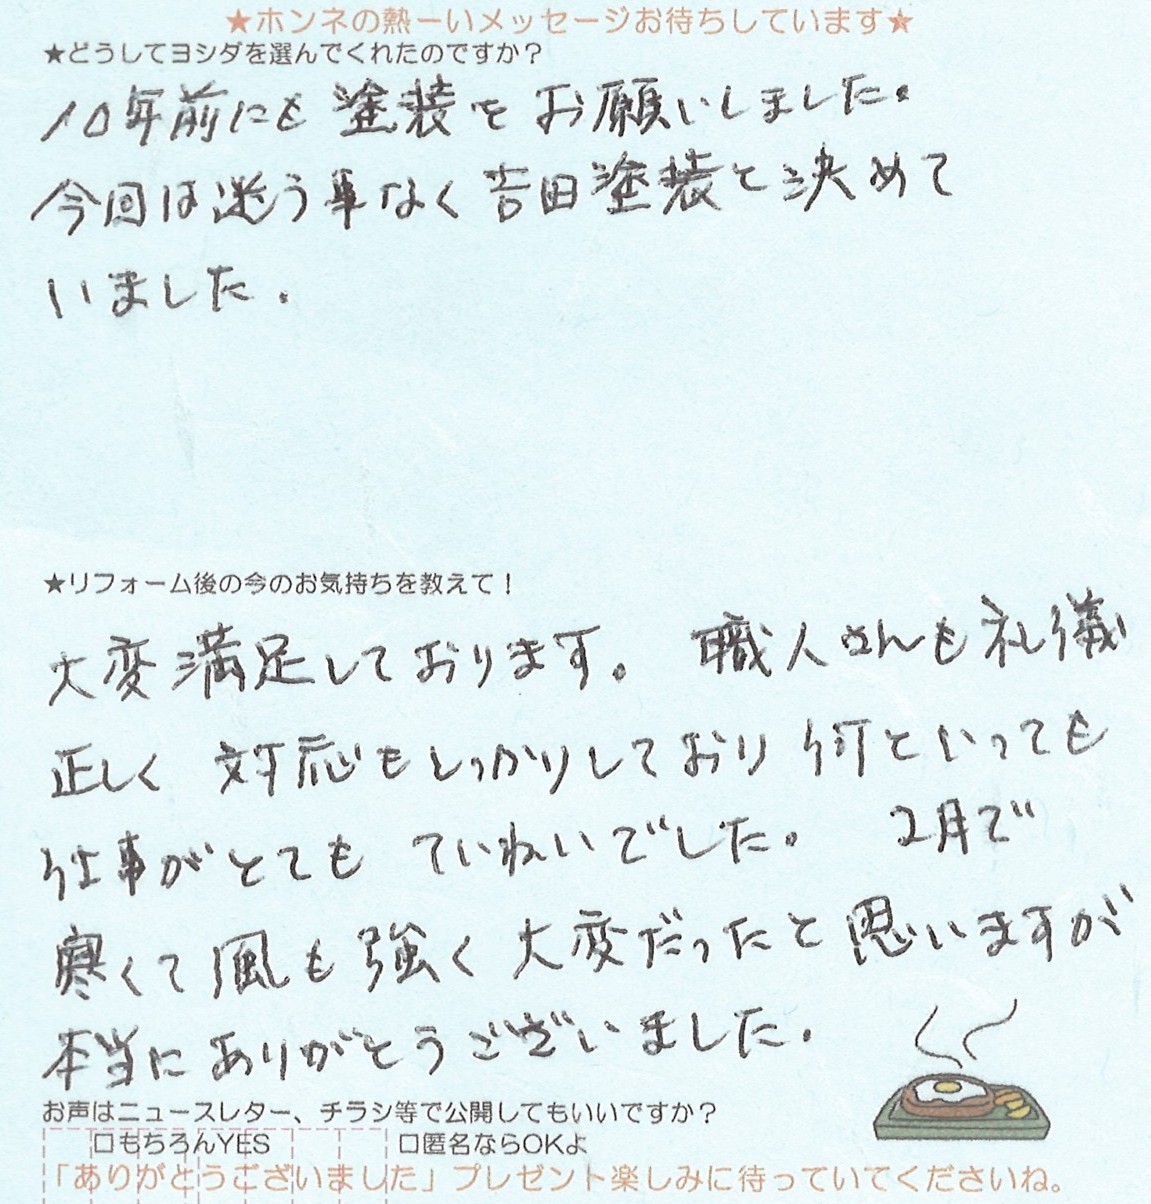 ★ホンネの熱ーいメッセージお待ちしています★
★どうしてヨシダを選んでくれたのですか？
10年前にも塗装をお願いしました。
今回は迷う事なく吉田塗装と決めて
いました.
★リフォーム後の今のお気持ちを教えて！
大変満足しております。 職人さんも礼儀
正しく 対応もしっかりしており 何といっても
仕事がとても ていねいでした。 2月で
寒くて風も強く大変だったと思いますが
本当にありがとうございました.
お声はニュースレター、チラシ等で公開してもいいですか？
□もちろんYES □匿名ならOKよ
「ありがとうございました」プレゼント楽しみに待っていてくださいね。